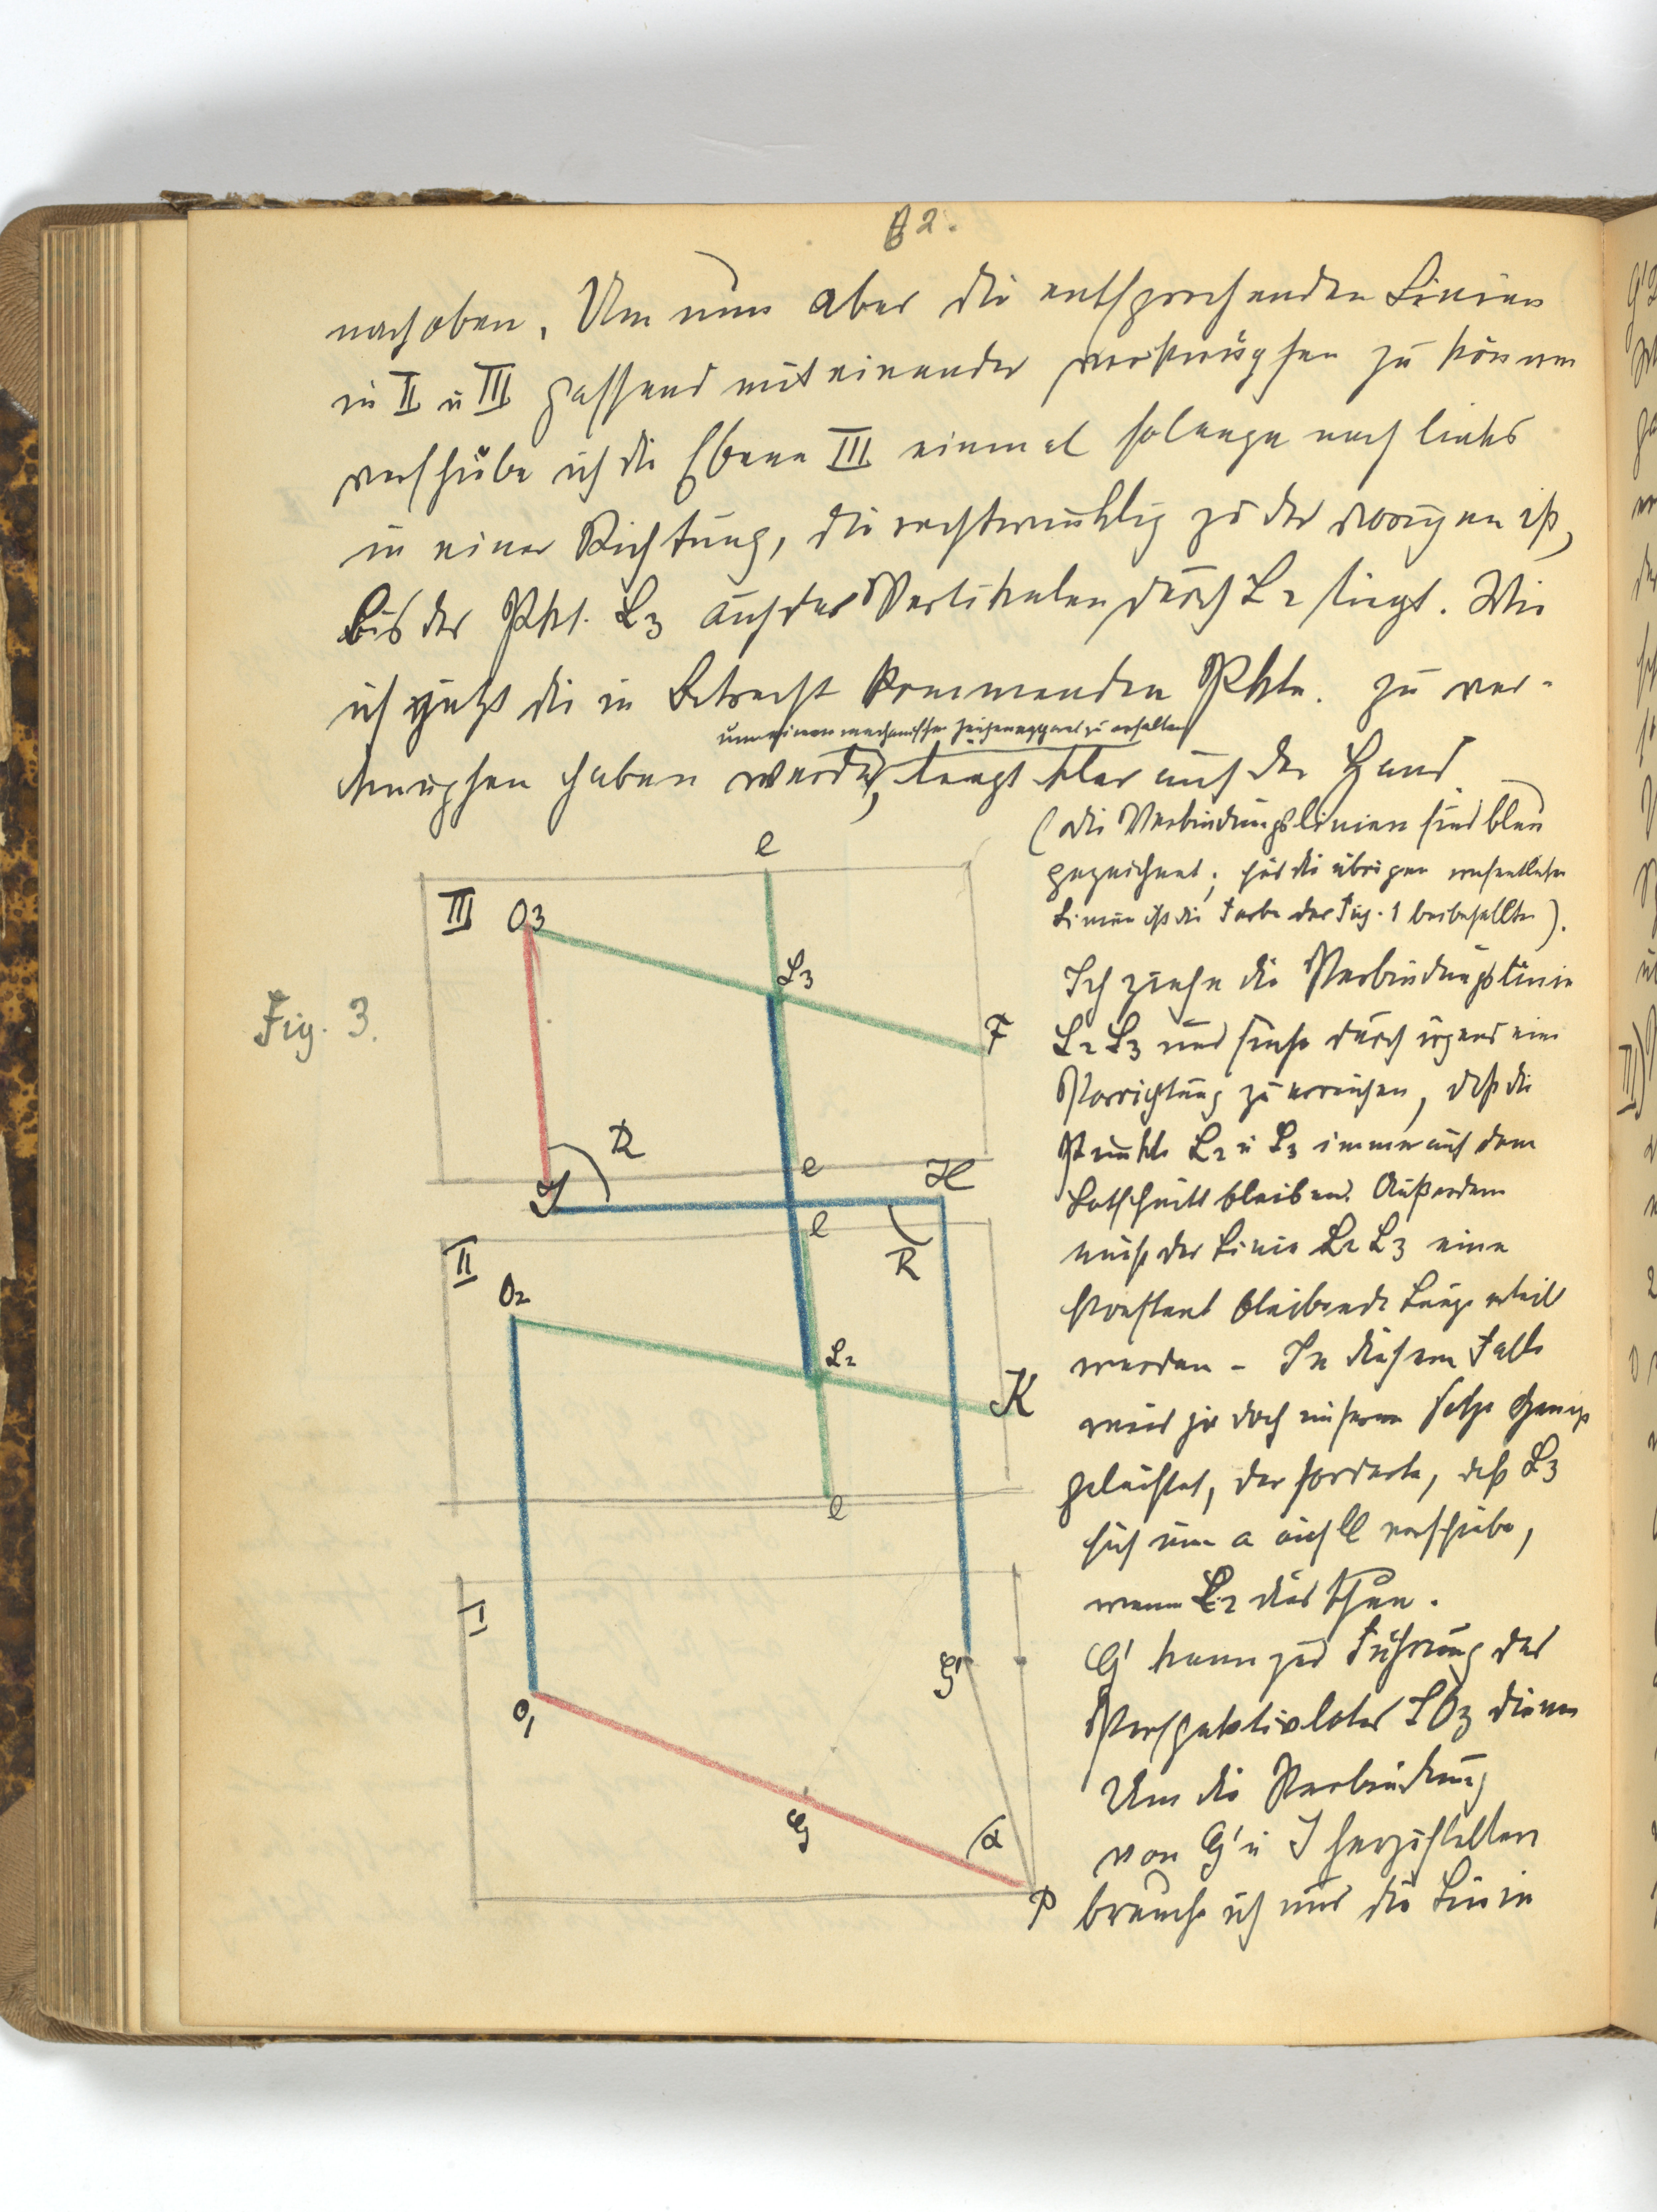 82.
nach oben. Um nun aber die entsprechenden Linien
in II u III passend miteinander verknüpfen zu können
verschübe ich die Ebene III einmal solange nach links
in einer Richtung, die rechtwinklig zu der vorigen ist,
bis der Pkt. L3 auf der Vertikalen durch L2 liegt. Wie
ich jetzt die in Betracht kommenden Pkte. zu ver-
um einen mechanischen Zeichenapparat zu erhalten
knüpfen haben werde, liegt klar auf der Hand.
(die Verbindungslinien sind blau
gezeichnet; für die übrigen wesentlichen
Linien ist die Farbe der Fig. 1 beibehalten).
Ich ziehe die Verbindungslinie
L2 L3 und suche durch irgend eine
Vorrichtung zu erreichen, daß die
Punkte L2 u L3 immer auf dem
Lotschnitt bleiben. Außerdem
muß der Linie L2 L3 eine
konstant bleibende Länge erteilt
werden - In diesem Falle
wird ja doch unserem Satze Genüge
geleistet, der forderte, daß L3
sich um a auf ll verschiebe,
wenn L2 dies thue.
G' kann zur Führung des
Perspektivlotes JO3 dienen
Um die Verbindung
von G' u J herzustellen
brauche ich nur die Linie
Fig. 3.
l
III
O3
L3
F
R
l
J
H
l
R
II
O2
L2
K
l
I
G'
O1
G
α
P